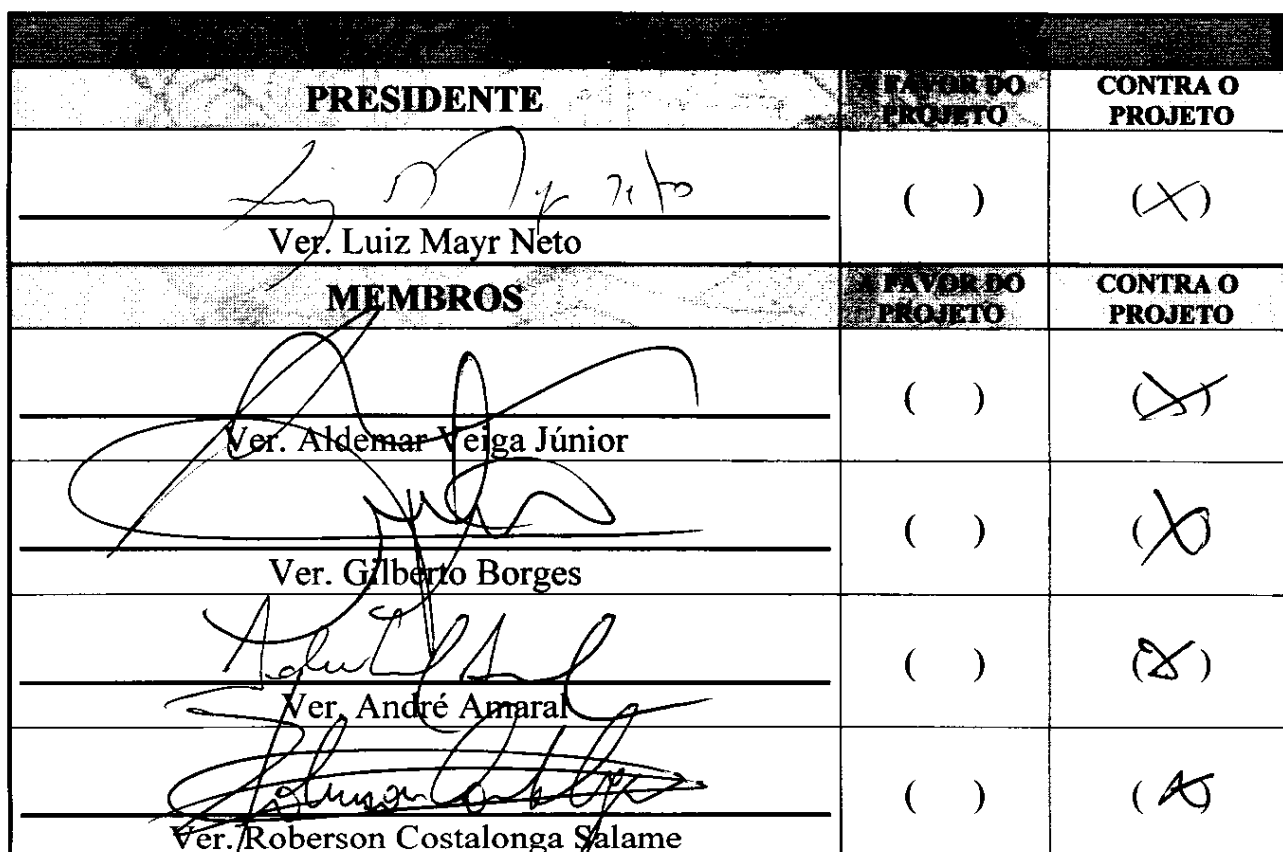 PRESIDENTE
A FAVOR DO PROJETO
CONTRA O PROJETO
Luiz Mayr Neto
( ) (X)
Ver. Luiz Mayr Neto
MEMBROS
A FAVOR DO PROJETO
CONTRA O PROJETO
( ) (X)
Ver. Aldemar Veiga Júnior
( ) (X)
Ver. Gilberto Borges
( ) (X)
Ver. André Amaral
( ) (X)
Ver. Roberson Costalonga Salame